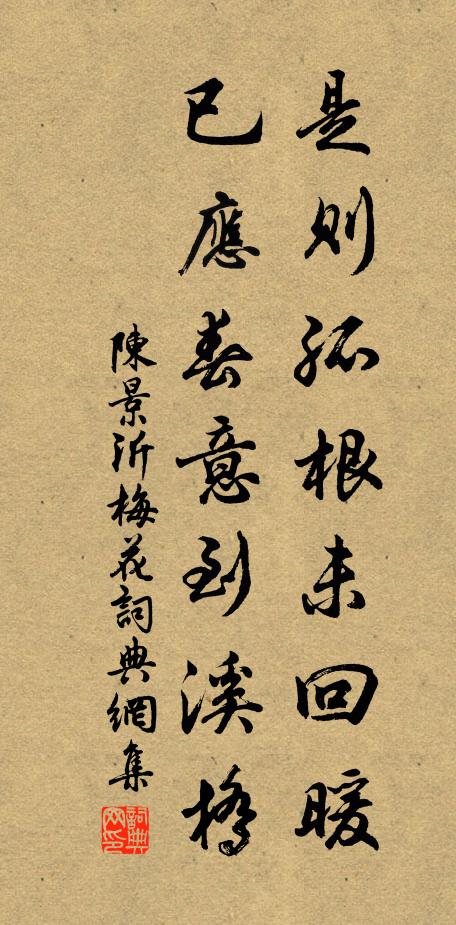 是則孤根未回暖
已應春意到溪橋
陳景沂梅花詞典網集
詞典網印